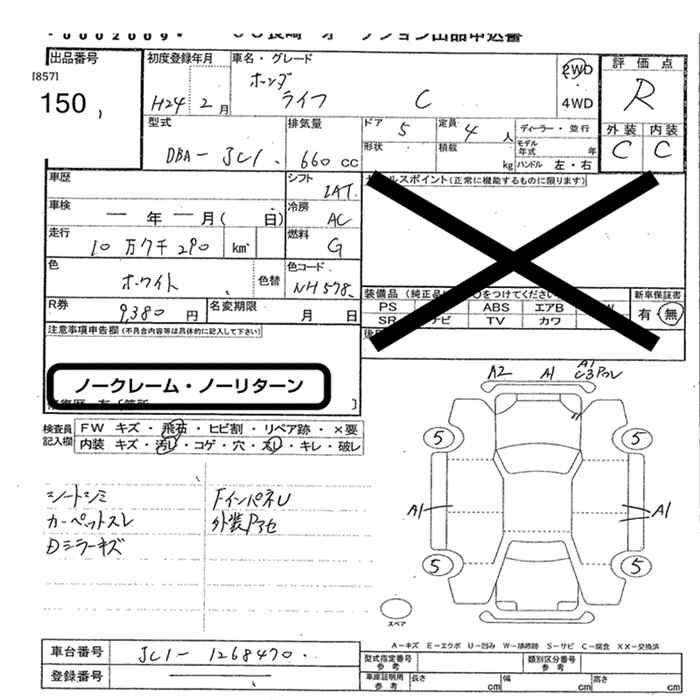 出品番号
[857]
150
初度登録年月
H24 2月
車名・グレード
ホンダ
ライフ C
2WD
4WD
評価点
R
外装 内装
C C
型式
DBA- JC1
排気量
660 cc
ドア 5
形状
定員 4 人
積載 kg
ディーラー・並行
モデル年式 年
ハンドル 左・右
車歴
シフト
IAT
車検
年 月( 日)
冷房
AC
走行
10万7千290 km
燃料
G
色
ホワイト
色替
色コード
NH578
R券
9,380円
名変期限
月 日
セールスポイント(正常に機能するものに限ります)
装備品
PS ABS エアB
SR TV カワ
新車保証書
有・無
注意事項申告欄(不具合内容等は具体的に記入して下さい)
ノークレーム・ノーリターン
検査員記入欄
FW キズ・飛石・ヒビ割・リペア跡・×要
内装 キズ・汚レ・コゲ・穴・スレ・キレ・破レ
シートシミ
カーペットスレ
Dミラーキズ
FインパネU
A2 A1 A1
5 5
A1 A1
5 5
スペア
A-キズ E-エクボ U-凹み W-補修跡 S-サビ C-腐食 XX-交換済
車台番号 JC1-1268470
登録番号
型式指定番号 参考
類別区分番号 参考
車庫証明用 参考
長さ cm 幅 cm 高さ cm